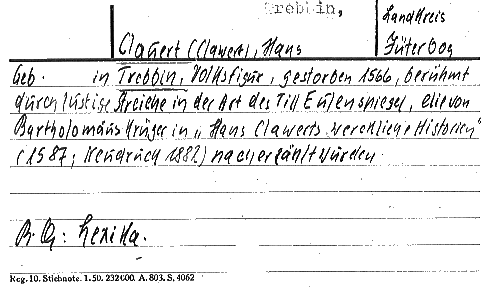 Trebbin,
Landkreis
Clauert (Clawert), Hans
Jüterbog
Geb. in Trebbin, Volksfigur, gestorben 1566, berühmt
durch lustige Streiche in der Art des Till Eulenspiegel, die von
Bartholomäus Krüger in „Hans Clawerts werckliche Historien"
(1587, Neudruck 1882) nacherzählt wurden.
B. Qu: Lexika.
Reg. 10. Stiebnote. 1. 50. 232 000. A. 803. S. 4062